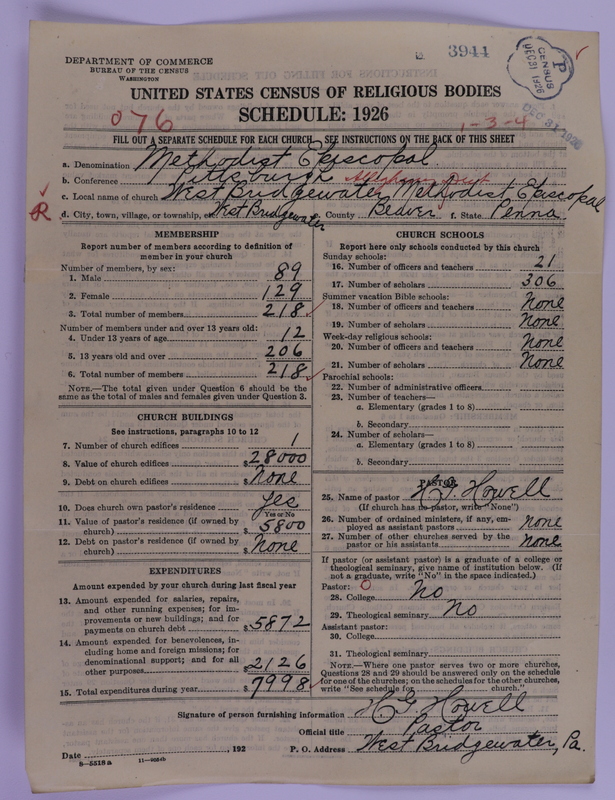 DEPARTMENT OF COMMERCE
BUREAU OF THE CENSUS
WASHINGTON
3944
P
CENSUS
DEC 31 1926
DEC 31 1926
UNITED STATES CENSUS OF RELIGIOUS BODIES
SCHEDULE: 1926
076
1-3-4
FILL OUT A SEPARATE SCHEDULE FOR EACH CHURCH. SEE INSTRUCTIONS ON THE BACK OF THIS SHEET
a. Denomination Methodist Episcopal
b. Conference Pittsburgh
c. Local name of church West Bridgewater Methodist Episcopal
R d. City, town, village, or township, etc. West Bridgewater County Beaver f. State Penna.
MEMBERSHIP
Report number of members according to definition of
member in your church
Number of members, by sex:
1. Male 89
2. Female 129
3. Total number of members 218
Number of members under and over 13 years old:
4. Under 13 years of age 12
5. 13 years old and over 206
6. Total number of members 218
NOTE.—The total given under Question 6 should be the
same as the total of males and females given under Question 3.
CHURCH BUILDINGS
See instructions, paragraphs 10 to 12
7. Number of church edifices 1
8. Value of church edifices $28000
9. Debt on church edifices $None
10. Does church own pastor's residence? Yes
Yes or No
11. Value of pastor's residence (if owned by
church) $5800
12. Debt on pastor's residence (if owned by
church) $None
EXPENDITURES
Amount expended by your church during last fiscal year
13. Amount expended for salaries, repairs,
and other running expenses; for im-
provements or new buildings; and for
payments on church debt $5872
14. Amount expended for benevolences, in-
cluding home and foreign missions; for
denominational support; and for all
other purposes 2126
15. Total expenditures during year $7998
CHURCH SCHOOLS
Report here only schools conducted by this church
Sunday schools:
16. Number of officers and teachers 21
17. Number of scholars 306
Summer vacation Bible schools:
18. Number of officers and teachers None
19. Number of scholars None
Week-day religious schools:
20. Number of officers and teachers None
21. Number of scholars None
Parochial schools:
22. Number of administrative officers
23. Number of teachers—
a. Elementary (grades 1 to 8)
b. Secondary
24. Number of scholars—
a. Elementary (grades 1 to 8)
b. Secondary
PASTOR
25. Name of pastor H. G. Howell
(If church has no pastor, write "None")
26. Number of ordained ministers, if any, em-
ployed as assistant pastors None
27. Number of other churches served by the
pastor or his assistants None
If pastor (or assistant pastor) is a graduate of a college or
theological seminary, give name of institution below. (If
not a graduate, write "No" in the space indicated.)
Pastor:
28. College No
29. Theological seminary No
Assistant pastor:
30. College
31. Theological seminary
NOTE.—Where one pastor serves two or more churches,
Questions 28 and 29 should be answered only on the schedule
for one of the churches; on the schedules for the other churches,
write "See schedule for church."
Signature of person furnishing information H. G. Howell
Official title Pastor
Date , 192 P. O. Address West Bridgewater, Pa.
8-5518a 11-9084b